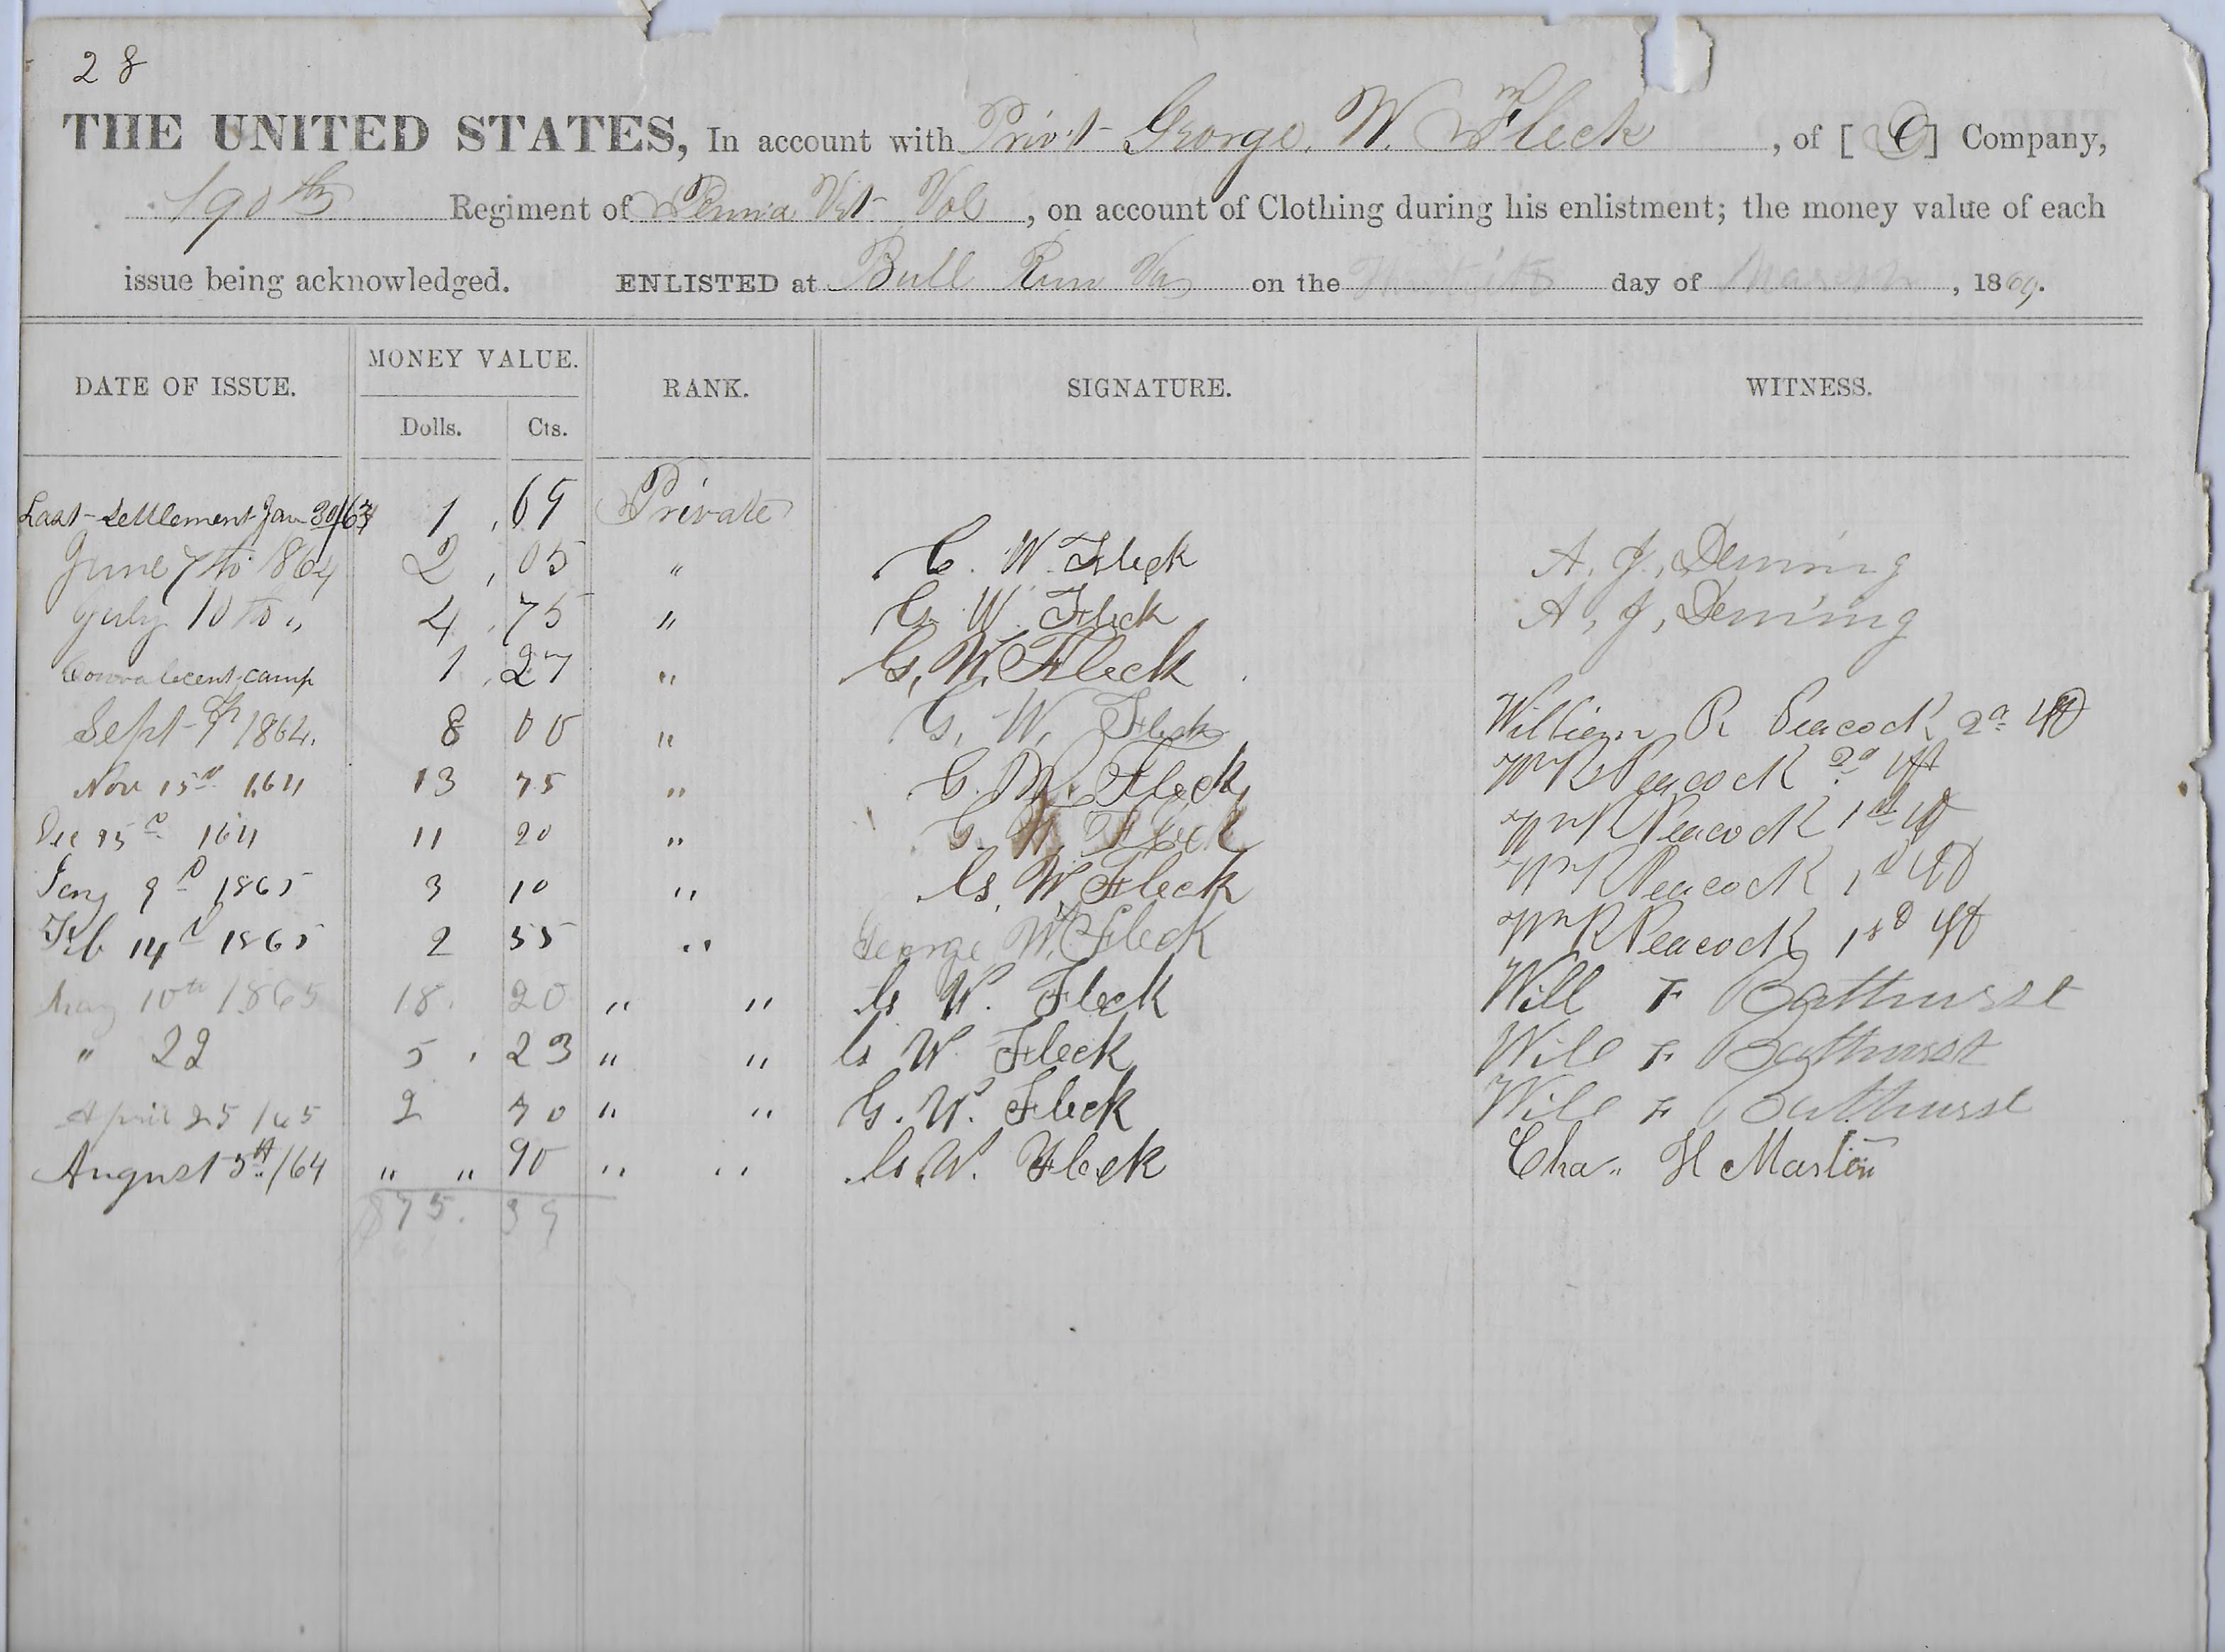 28
THE UNITED STATES, In account with Priv't George. W. Fleck, of [C] Company,
190th Regiment of Penn'a Vet Vol, on account of Clothing during his enlistment; the money value of each
issue being acknowledged. ENLISTED at Bull Run Va on the day of March, 1864.
DATE OF ISSUE. MONEY VALUE. RANK. SIGNATURE. WITNESS.
Dolls. Cts.
Last Settlement Jan 30/63 1.69 Private
June 7th 1864 2.05 " G. W. Fleck A. J. Deming
July 10th " 4.75 " G. W. Fleck A. J. Deming
Convalecent camp 1.27 " G. W. Fleck
Sept 9th 1864. 8 00 " G. W. Fleck William R Peacock 2d Lt
Nov 15th 1864 13 75 " G. W. Fleck Wm R Peacock 2d Lt
Dec 1864 11 20 " G. W. Fleck Wm R Peacock 1st Lt
Jany 9th 1865 3 10 " G. W. Fleck Wm R Peacock 1st Lt
Feb 14th 1865 2 55 " George W. Fleck Wm R Peacock 1st Lt
May 10th 1865 18. 20 " " G W. Fleck Will F Bathurst
" 22 5. 23 " " G W. Fleck Will F Bathurst
April 25 /65 2 70 " " G. W. Fleck Will F Bathurst
August 5th /64 " " 90 " " G. W. Fleck Cha" H Martin
$75. 39